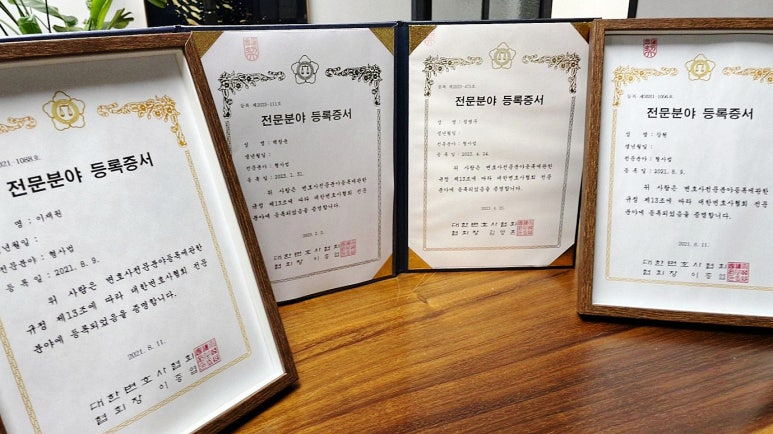 021-1068호
전문분야 등록증서
명 : 이재원
생년월일 :
전문분야 : 형사법
등 록 일 : 2021. 8. 9.
위 사람은 변호사전문분야등록에관한
규정 제13조에 따라 대한변호사협회 전문
분야에 등록되었음을 증명합니다.
2021. 8. 11.
대한변호사협회
협회장 이종엽
등록 제2023-111호
전문분야 등록증서
성 명 :
생년월일 :
전문분야 : 형사법
등 록 일 : 2023. 1. 31.
위 사람은 변호사전문분야등록에관한
규정 제13조에 따라 대한변호사협회 전문
분야에 등록되었음을 증명합니다.
2023. 2. 2.
대한변호사협회
협회장 이종엽
전문분야 등록증서
성 명 :
생년월일 :
전문분야 : 형사법
등 록 일 : 2023. 4. 24.
위 사람은 변호사전문분야등록에관한
규정 제13조에 따라 대한변호사협회 전문
분야에 등록되었음을 증명합니다.
대한변호사협회
협회장 김영훈
등록 제2021-1066호
전문분야 등록증서
성 명 : 상현
생년월일 :
전문분야 : 형사법
등 록 일 : 2021. 8. 9.
위 사람은 변호사전문분야등록에관한
규정 제13조에 따라 대한변호사협회 전문
분야에 등록되었음을 증명합니다.
2021. 8. 11.
대한변호사협회
협회장 이종엽